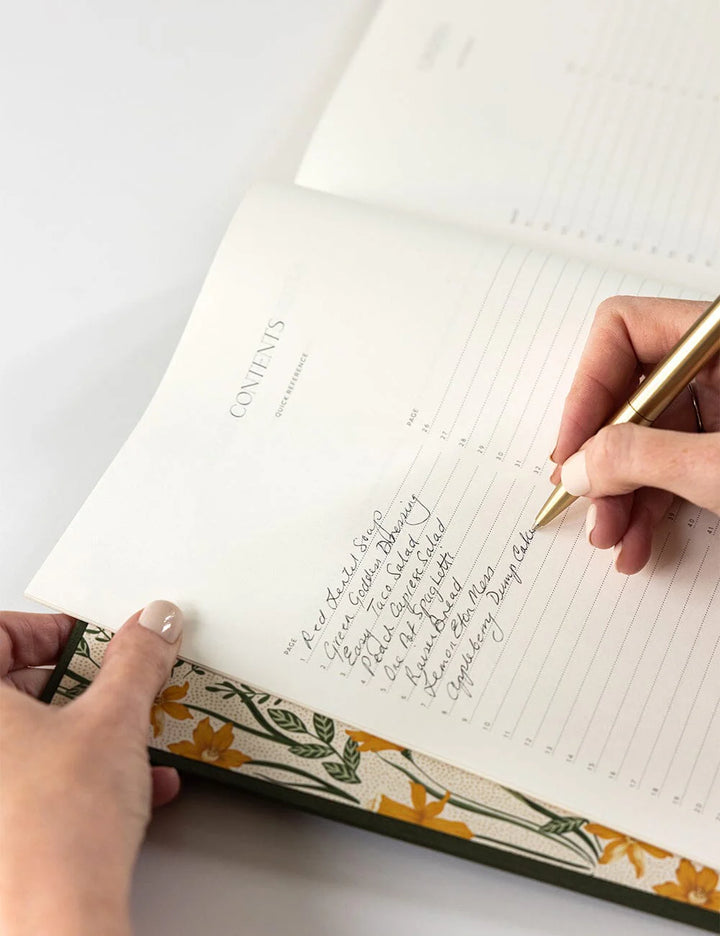 CONTENTS
QUICK REFERENCE
PAGE
1 Red Lentil Soup
2 Green Goddess Dressing
3 Easy Taco Salad
4 Peach Caprese Salad
5 One Pot Spaghetti
6 Raisin Bread
7 Lemon Eton Mess
8 Appleberry Dump Cake
9
10
11
12
13
14
15
16
17
18
19
20
PAGE
26
27
28
29
30
31
32
39
40
41